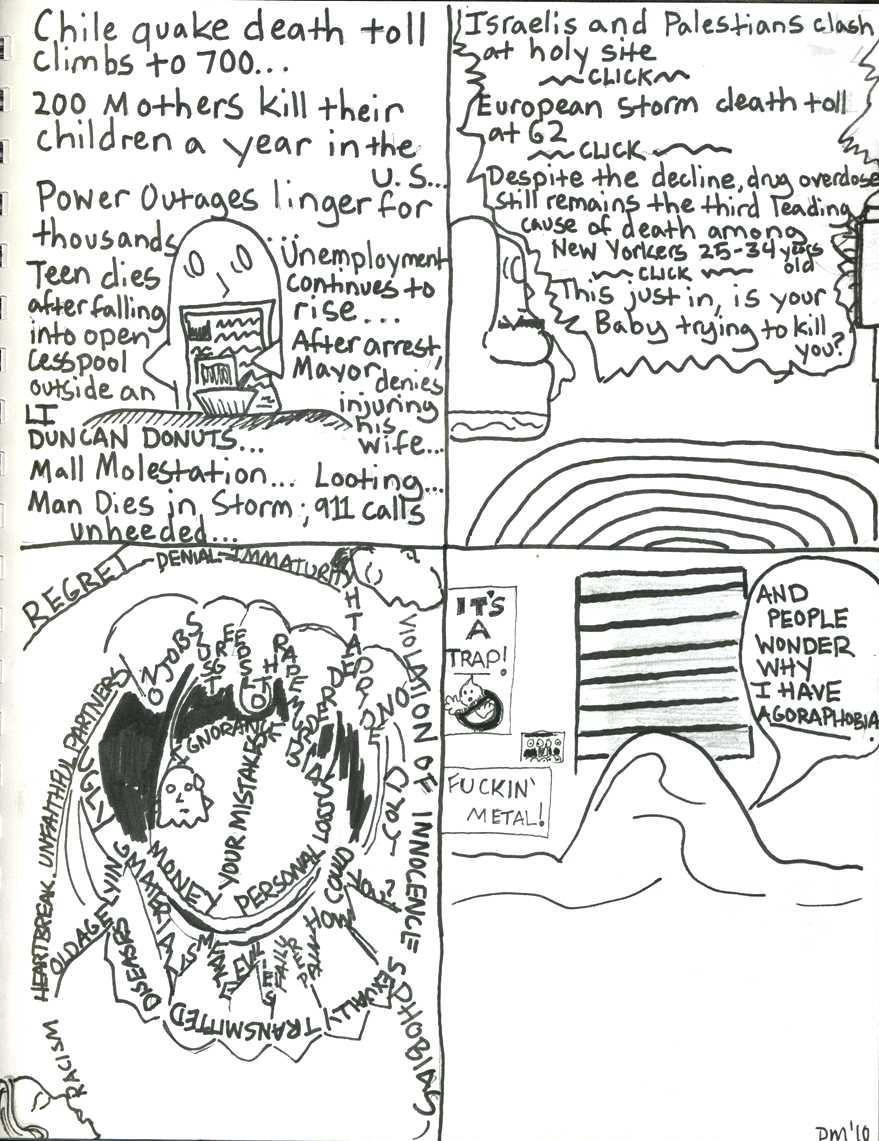 Chile quake death toll
climbs to 700...
200 Mothers kill their
children a year in the
U.S...
Power Outages linger for
thousands...
Teen dies
after falling
into open
cesspool
outside an
LI
DUNCAN DONUTS...
Unemployment
continues to
rise...
After arrest,
Mayor denies
injuring
his
wife...
Mall Molestation... Looting...
Man Dies in Storm; 911 calls
unheeded...
Israelis and Palestians clash
at holy site
CLICK
European storm death toll
at 62
CLICK
Despite the decline, drug overdose
still remains the third leading
cause of death among
New Yorkers 25-34 years
old
CLICK
This just in, is your
Baby trying to kill
you?
REGRET
DENIAL
IMMATURITY
HTAED
NO JOBS
DISGUST
RAPE
MURDER
IGNORANCE
YOUR MISTAKES
PERSONAL LOSS
MONEY
MATERIALISM
LYING
UGLY
OLD AGE
HEARTBREAK
UNFAITHFUL PARTNERS
RACISM
VIOLATION OF INNOCENCE
HOW COULD YOU?
LIES
FAILURE
PAIN
SEXUALLY
TRANSMITTED
DISEASES
IT'S
A
TRAP!
FUCKIN'
METAL!
AND
PEOPLE
WONDER
WHY
I HAVE
AGORAPHOBIA.
DM'10